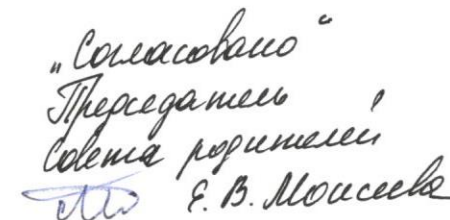 „Согласовано“
Председатель
Совета родителей
Е. В. Моисеева